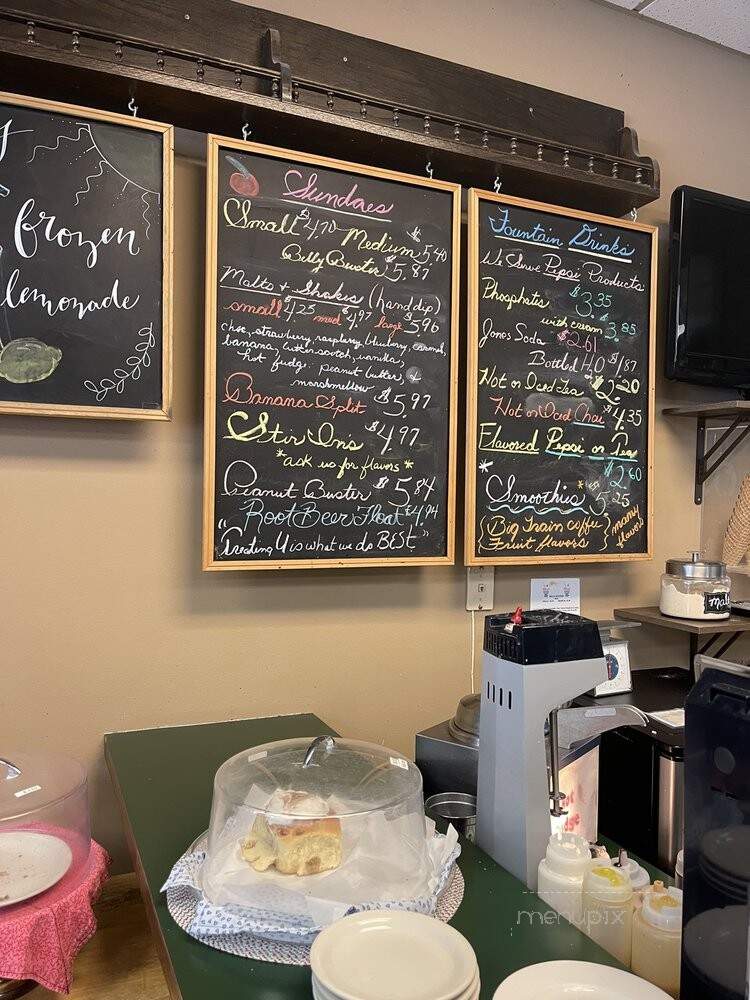 frozen
lemonade
Sundaes
Small $4.70 Medium $5.40
Belly Buster $5.87
Malts & Shakes (hand dip)
small $4.25 med $4.97 large $5.96
choc, strawberry, raspberry, blueberry, caramel,
banana, butterscotch, vanilla,
hot fudge, peanut butter, &
marshmellow
Banana Split $5.97
Stir Ins $4.97
*ask us for flavors*
Peanut Buster $5.84
Root Beer Float $4.94
"Treating U is what we do BEST"
Fountain Drinks
We Serve Pepsi Products
Phosphates $3.35
with cream 3.85
Jones Soda $2.61
Bottled H2O $1.87
Hot or Iced Tea $2.20
Hot or Iced Chai $4.35
Flavored Pepsi or Tea
$2.60
*Smoothies* $5.25
{Big Train coffee}
{Fruit flavors} many flavors
menupix